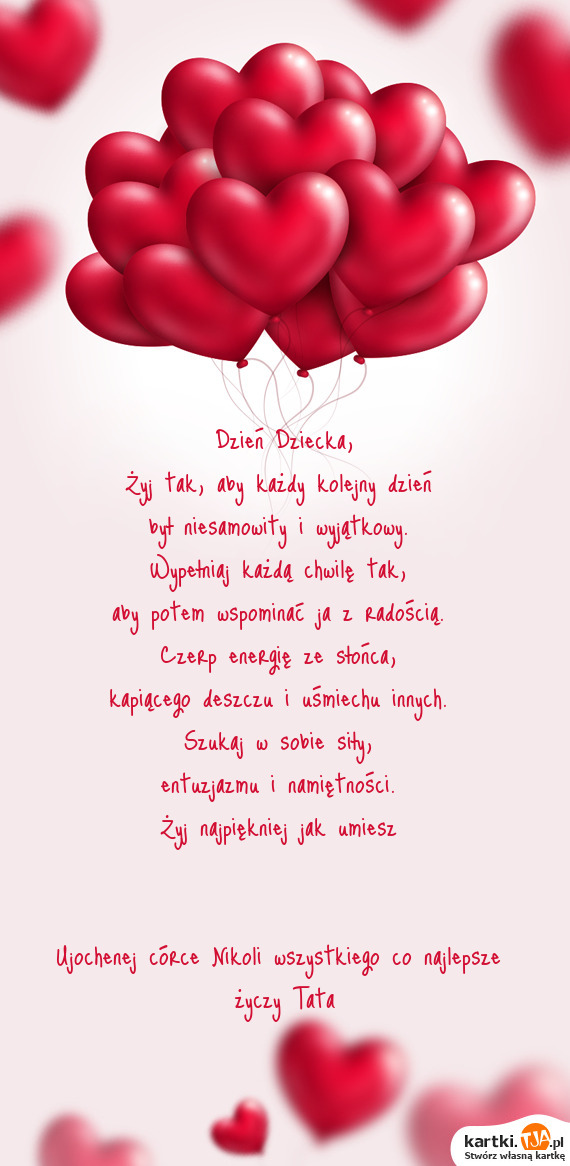 Dzień Dziecka,
Żyj tak, aby każdy kolejny dzień
był niesamowity i wyjątkowy.
Wypełniaj każdą chwilę tak,
aby potem wspominać ja z radością.
Czerp energię ze słońca,
kapiącego deszczu i uśmiechu innych.
Szukaj w sobie siły,
entuzjazmu i namiętności.
Żyj najpiękniej jak umiesz
Ujochenej córce Nikoli wszystkiego co najlepsze
życzy Tata
kartki.TJA.pl
Stwórz własną kartkę